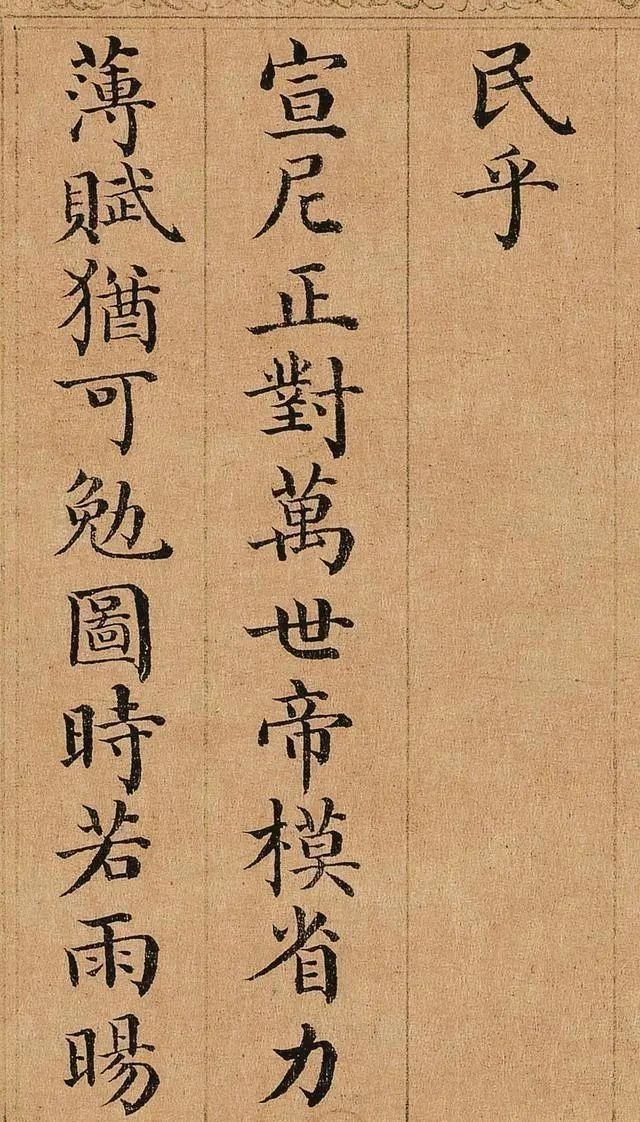 民乎
宣尼正對萬世帝模省力
薄賦猶可勉圖時若雨暘